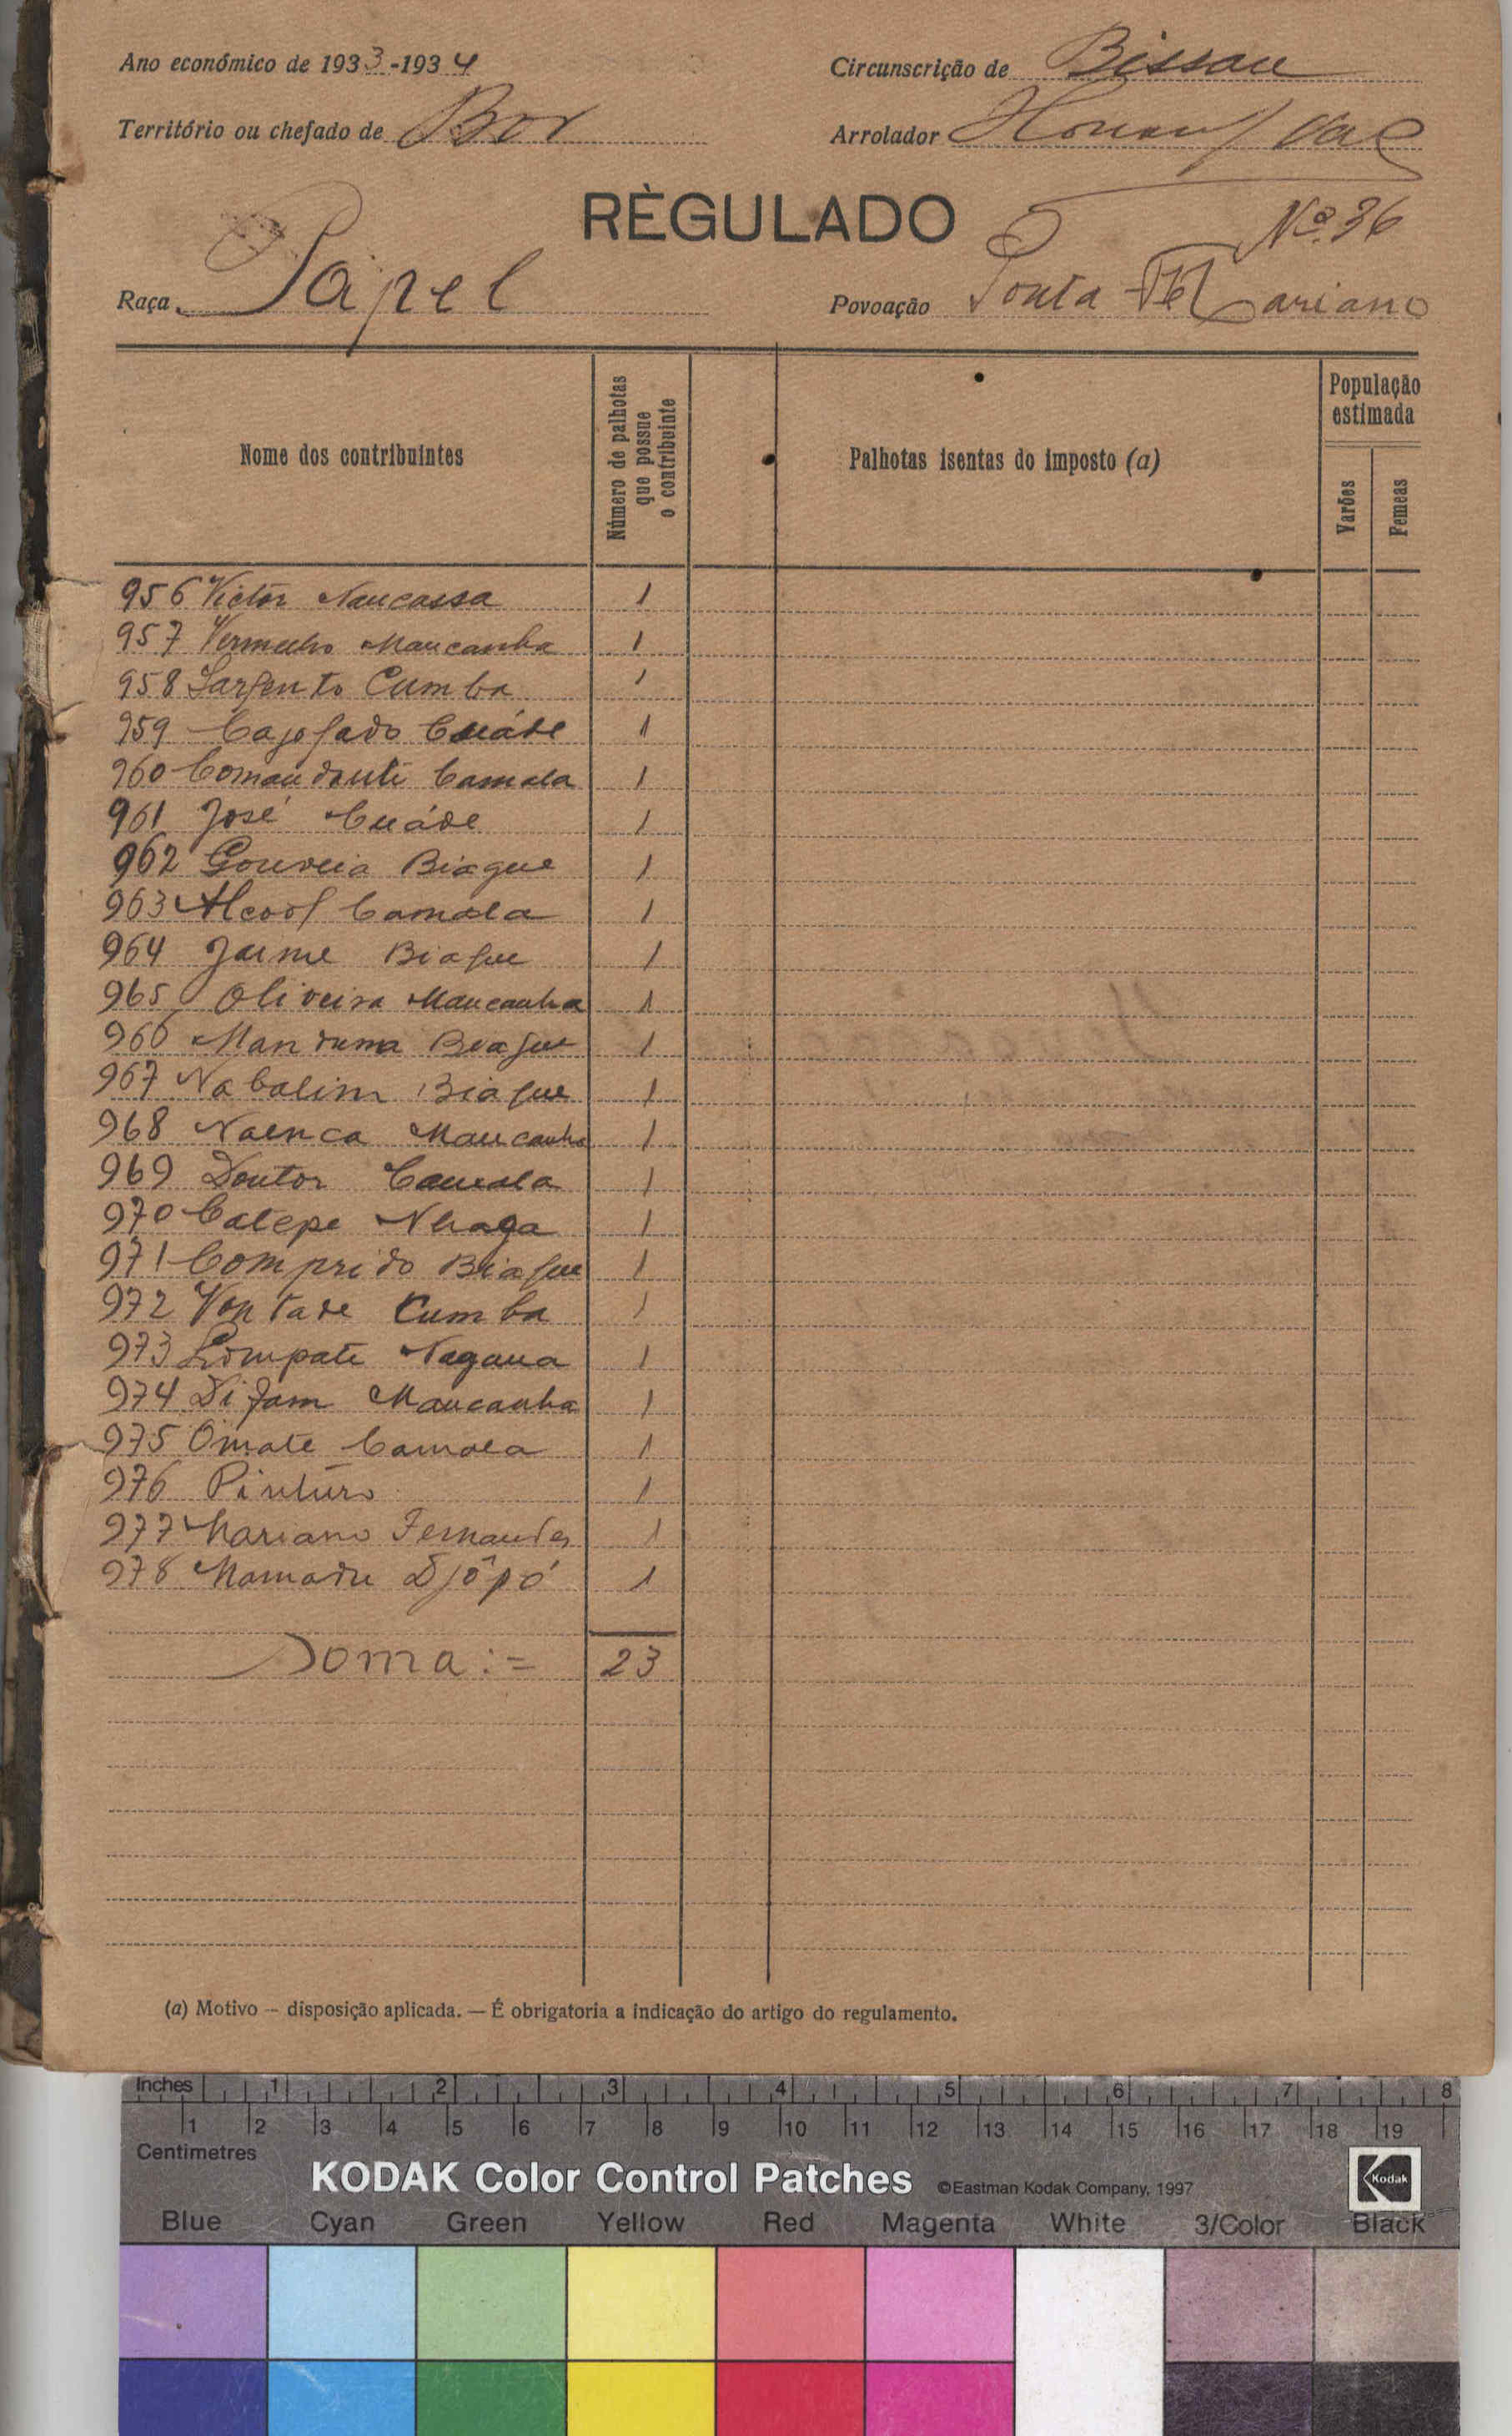 Ano económico de 1933-1934
Circunscrição de Bissau
Território ou chefado de Bor
Arrolador
RÈGULADO
Nº. 36
Raça Papel
Povoação Ponta Mariano
Nome dos contribuintes
Número de palhotas que possue o contribuinte
Palhotas isentas do imposto (a)
População estimada
Varões
Femeas
956 Victor Naucassa 1
957 Vermelho Maucanha 1
958 Sargento Cumba 1
959 Cajofado Cuáde 1
960 Comandante Camala 1
961 José Cuáde 1
962 Gouveia Biague 1
963 Alcool Camala 1
964 Jaime Biague 1
965 Oliveira Maucanha 1
966 Manduma Biague 1
967 Nabalim Biague 1
968 Naenca Maucanha 1
969 Doutor Camala 1
970 Catepe Nhaga 1
971 Comprido Biague 1
972 Vontade Cumba 1
973 Lompate Nagana 1
974 Difam Maucanha 1
975 Omate Camala 1
976 Pinturo 1
977 Mariano Fernandes 1
978 Mamadu Djôpó 1
Soma := 23
(a) Motivo — disposição aplicada. — É obrigatoria a indicação do artigo do regulamento.
Inches 1 2 3 4 5 6 7 8
1 2 3 4 5 6 7 8 9 10 11 12 13 14 15 16 17 18 19
Centimetres
KODAK Color Control Patches ©Eastman Kodak Company, 1997 Kodak
Blue Cyan Green Yellow Red Magenta White 3/Color Black